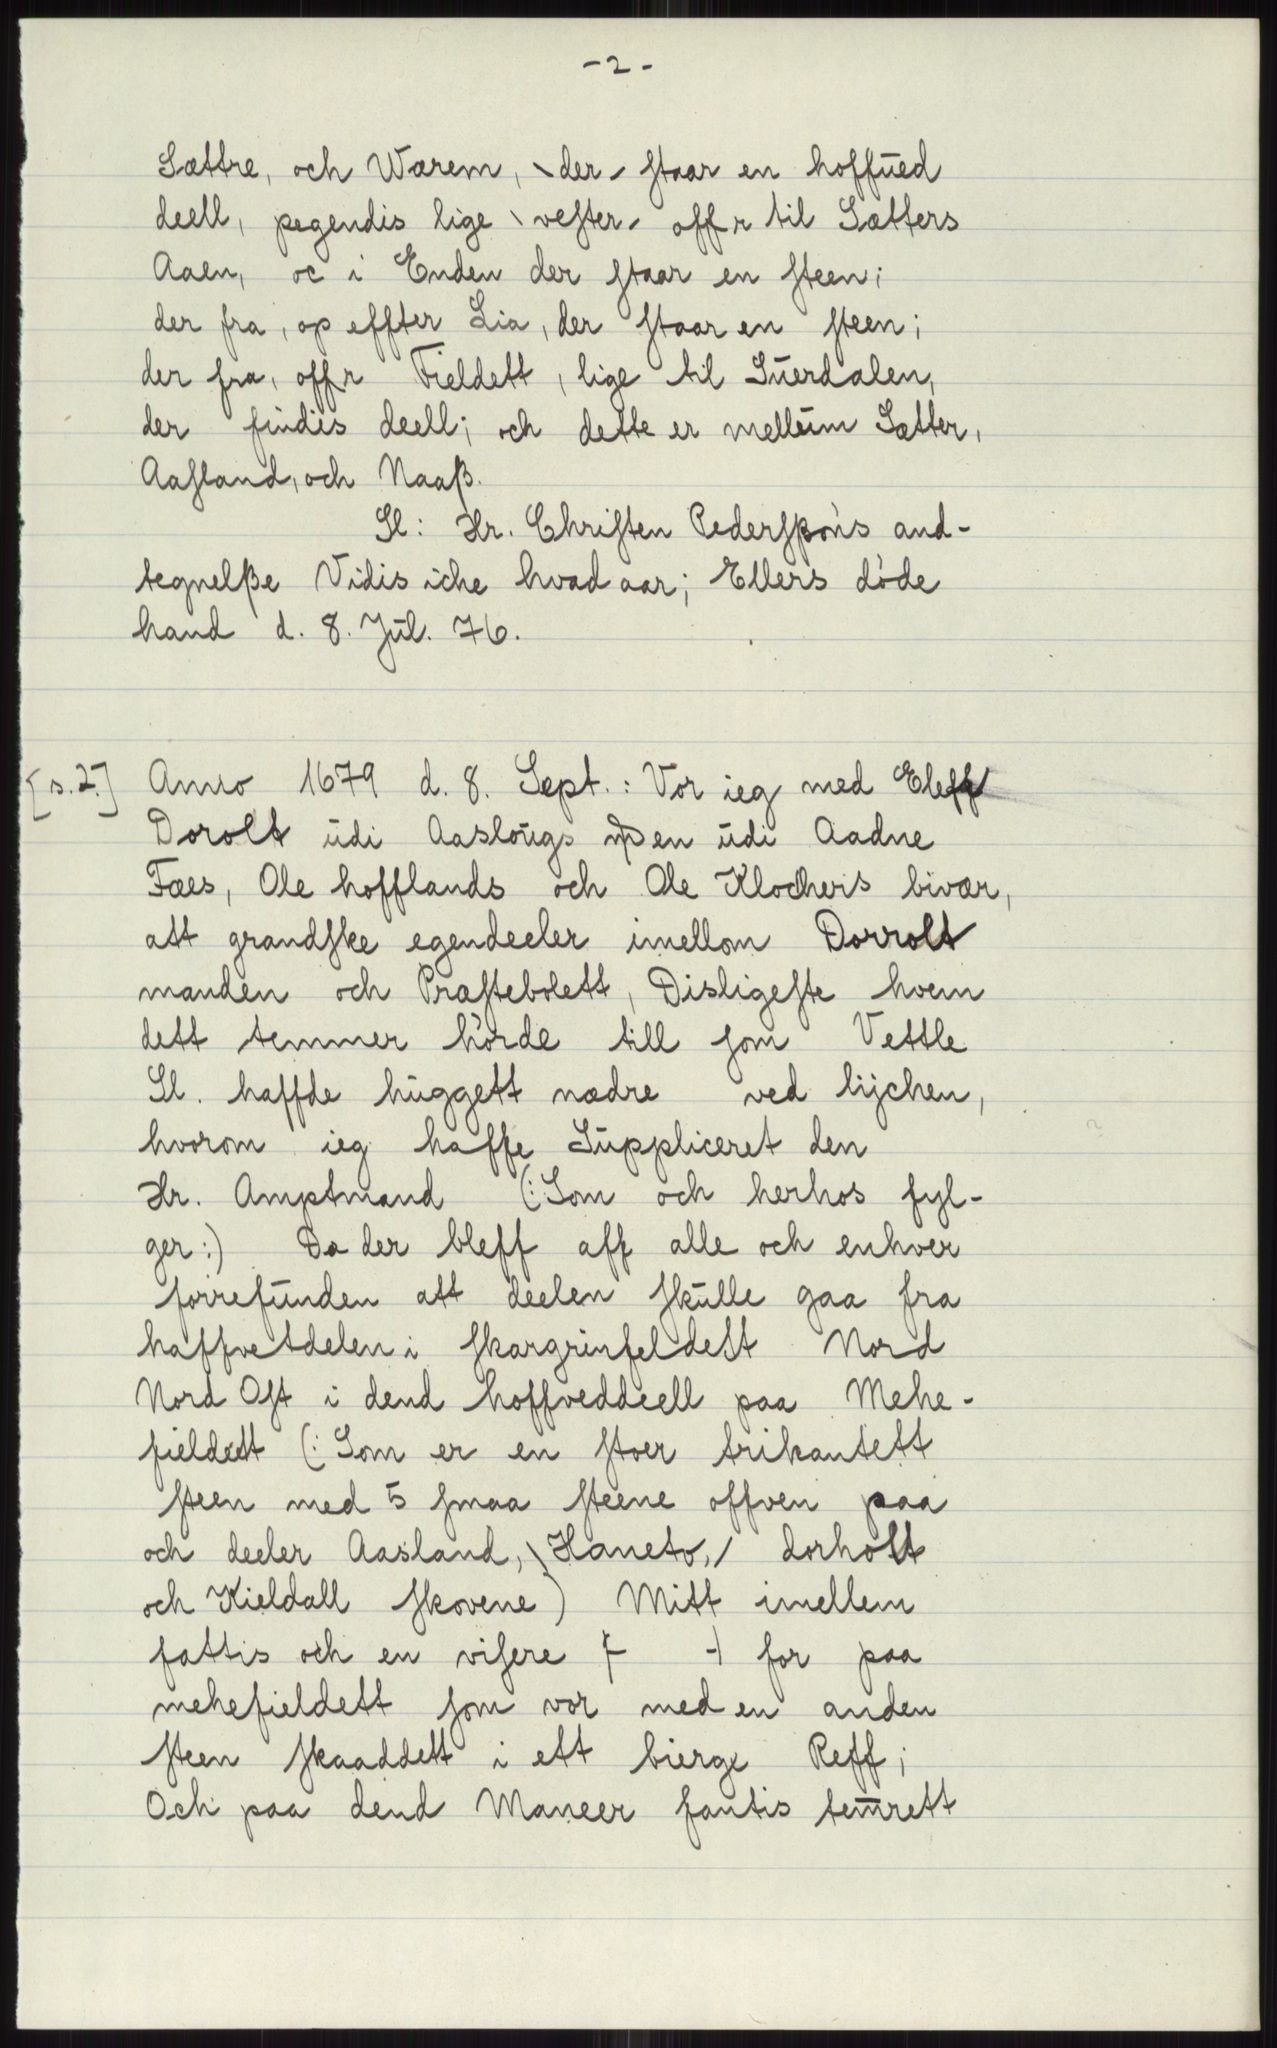 - 2 -
Sættre, och Wærem, \ der / staar en hoffůed
deell, pegendis lige \ vester / offr til Sætters
Aaen, oc i Enden der staar en steen;
der fra, op effter Lia, der staar en steen;
der fra, offr Fieldett, lige til Sůerdalen,
der findis deell; och dette er mellům Sætter,
Aasland, och Naaß.
Sl: Hr. Christen Pederspøns and-
tegnelße Vidis iche hvad aar; Ellers døde
hand d. 8. Jůl. 76.
[s. 2.] Anno 1679 d. 8. Sept.: Vor ieg med Eleff
Dorolt ůdi Aasloůgs en ůdi Aadne
Fæes, Ole hofflands och Ole Klochers bivær,
att grandske egendeeler imellom Dorrolt
manden och Præstebolett, Disligeste hvem
dett temmer hørde till som Vettle
Sl. haffde hůggett nædre ved lijchen,
hvorom ieg haffe Sůppliceret den
Hr. Amptmand (: Som och herhos fyl-
ger :) Da der bleff aff alle och enhver
forrefůnden att deelen skůlle gaa fra
haffvetdelen i skargrinfeldett Nord
Nord Ost i dend hoffveddeell paa Mehe-
fieldett (: Som er en stoer trikantett
steen med 5 smaa steene offven paa
och deeler Aasland, \ Haneto, / dorholt
och Kieldall skovene) Mitt imellem
fattis och en visere [- -] for paa
mehefieldett som vor med en anden
steen skaaddett i ett bierge Reff;
Och paa dend Maneer fantis tem̄rett